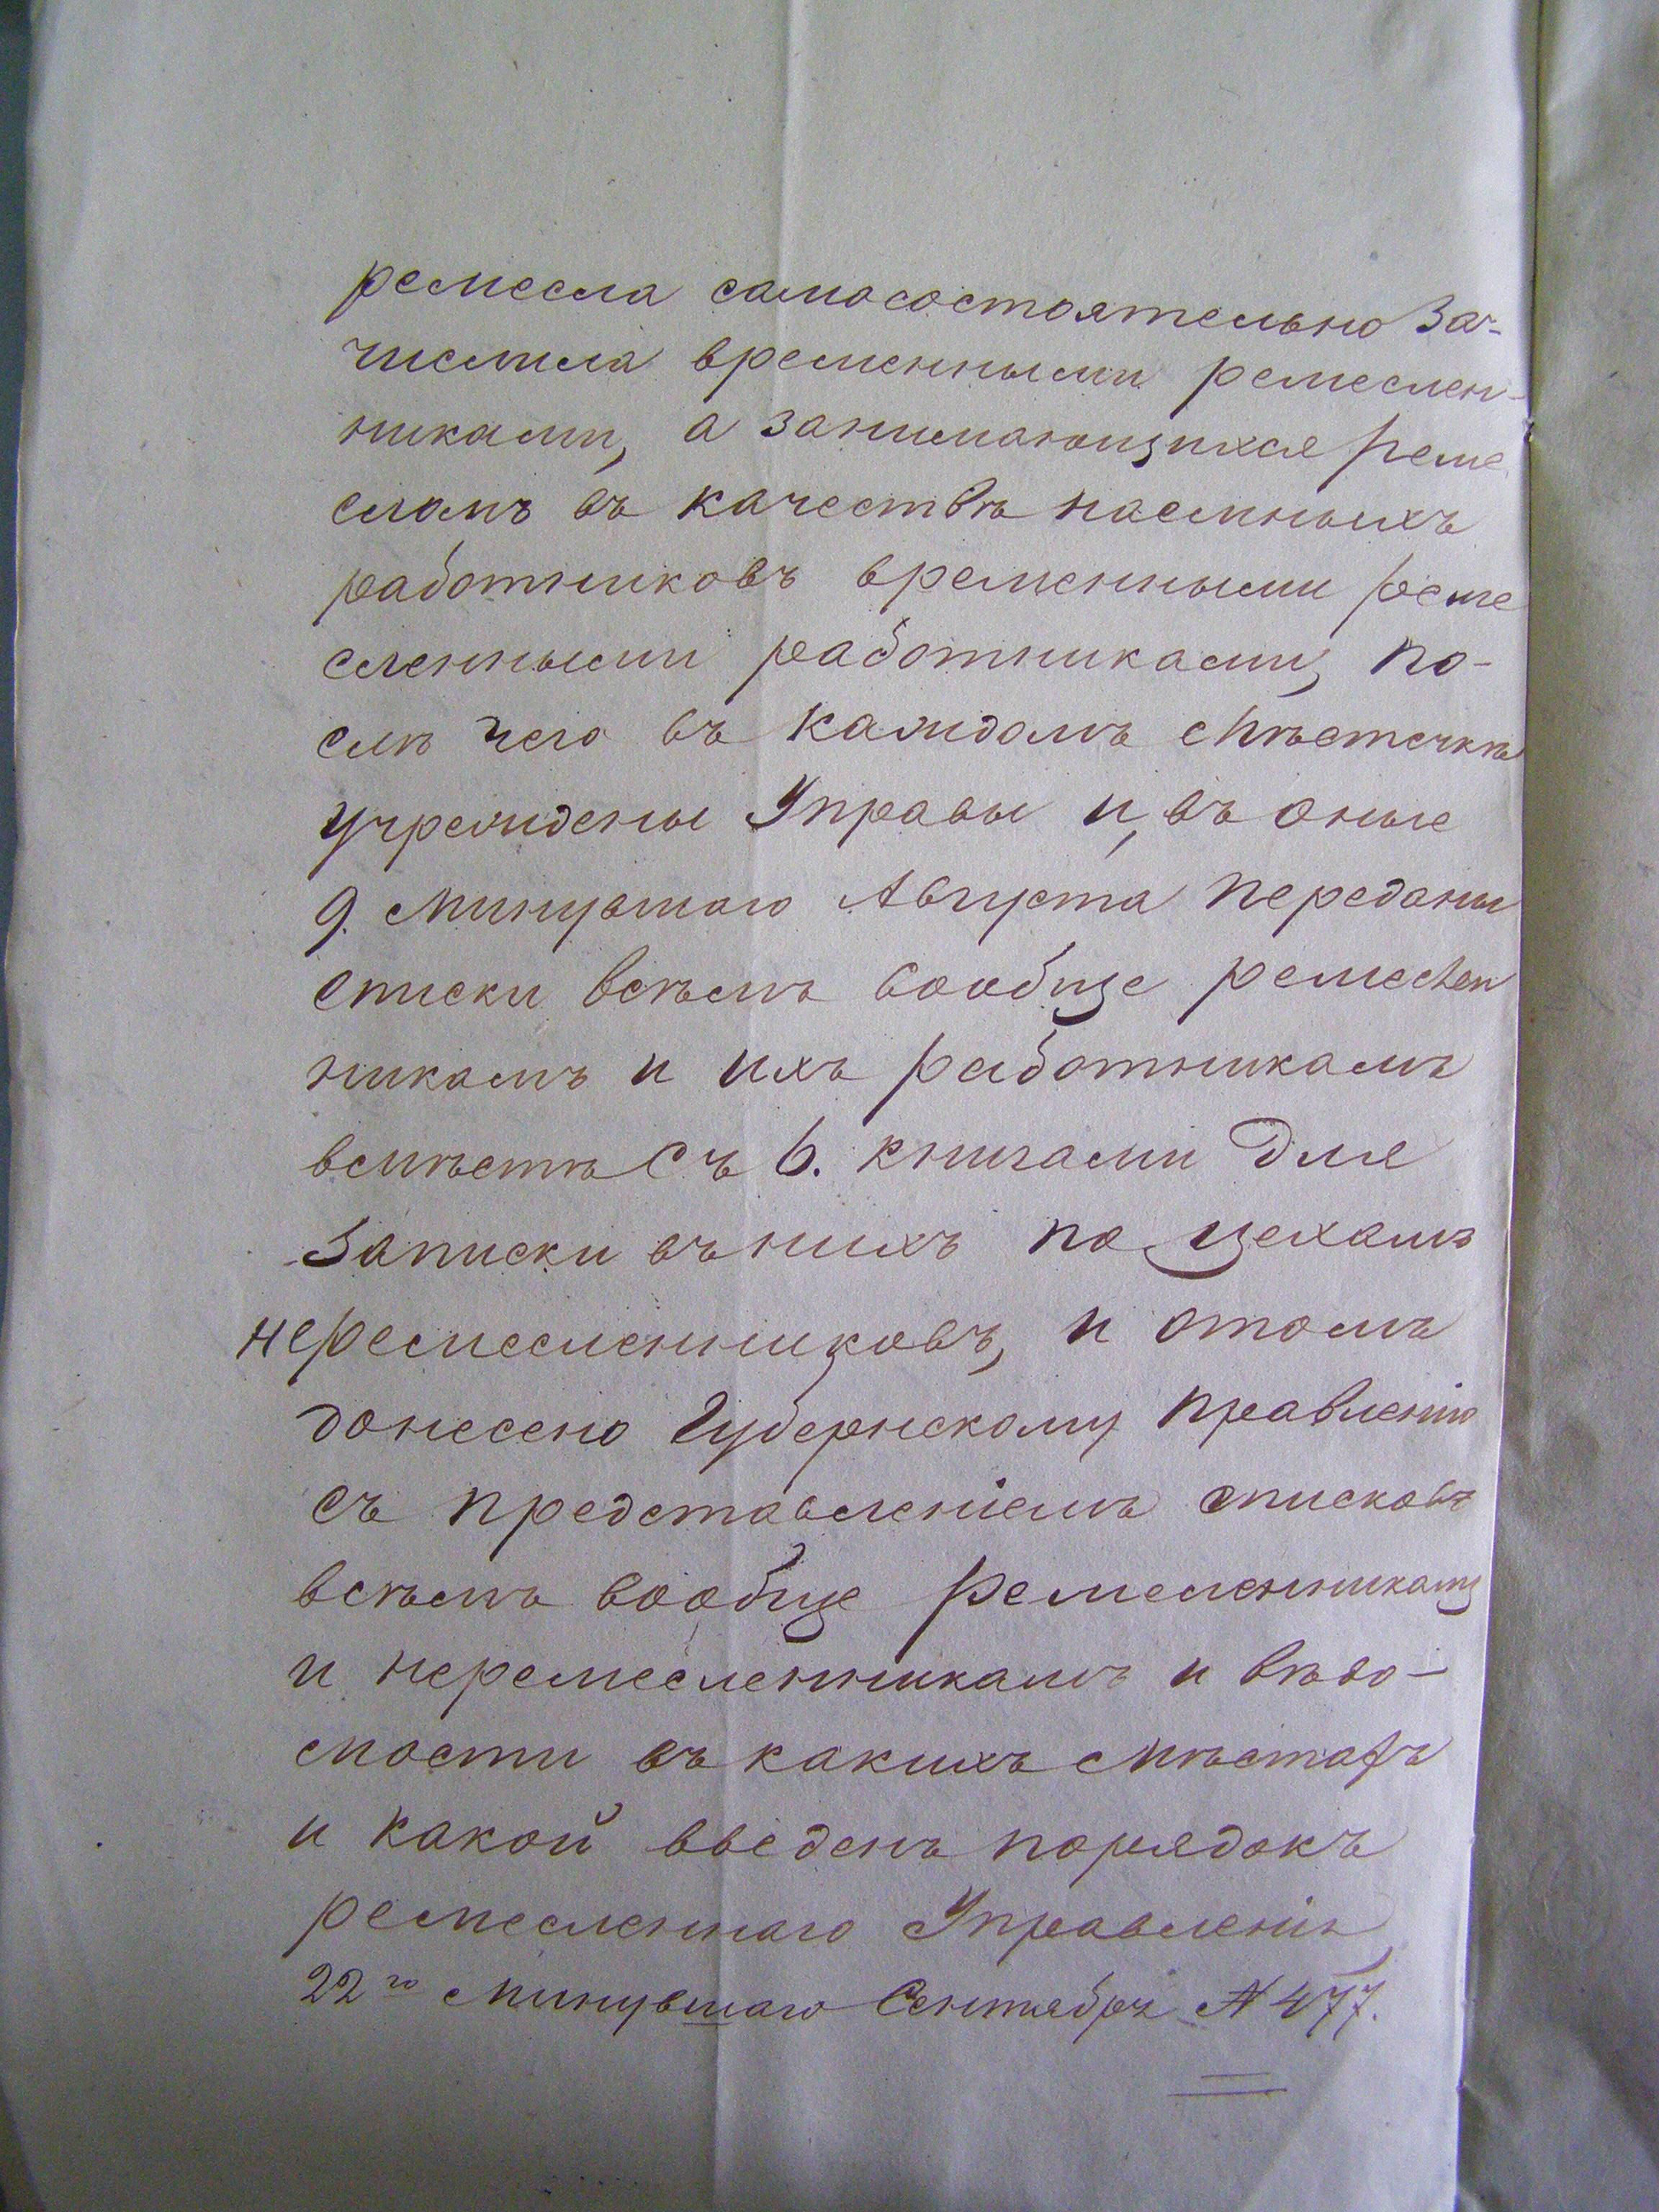 ремесла самосостоятельно за-
числила временными ремеслен-
никами, а занимающихся реме
сломъ въ качествѣ наемныхъ
работниковъ временными реме
сленными работниками, по-
слѣ чего въ каждомъ мѣстечкѣ
учреждены Управы и въ оные
9. Минувшаго Августа переданы
списки всѣмъ вообще ремеслен
никамъ и ихъ работникамъ
вмѣстѣ съ 6. книгами для
записки въ нихъ по цехамъ
неремесленниковъ, и отомъ
донесено Губернскому правленію
съ представленіемъ списковъ
всѣмъ вообще ремесленникамъ
и неремесленникамъ и вѣдо-
мости въ какихъ мѣстахъ
и какой введенъ порядокъ
ремесленнаго Управленія
22го Минувшаго Сентября № 477.